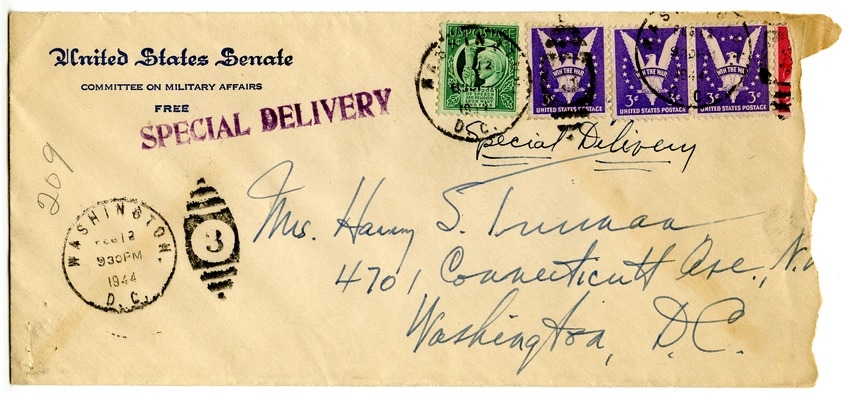 United States Senate
COMMITTEE ON MILITARY AFFAIRS
FREE
SPECIAL DELIVERY
U.S. POSTAGE
D.C.
WIN THE WAR
3¢
UNITED STATES POSTAGE
WIN THE WAR
3¢
UNITED STATES POSTAGE
WIN THE WAR
3¢
UNITED STATES POSTAGE
Special Delivery
209
WASHINGTON,
FEB 12
930PM
1944
D.C.
3
Mrs. Harry S. Truman
4701 Connecticutt Ave., N.
Washington, D.C.